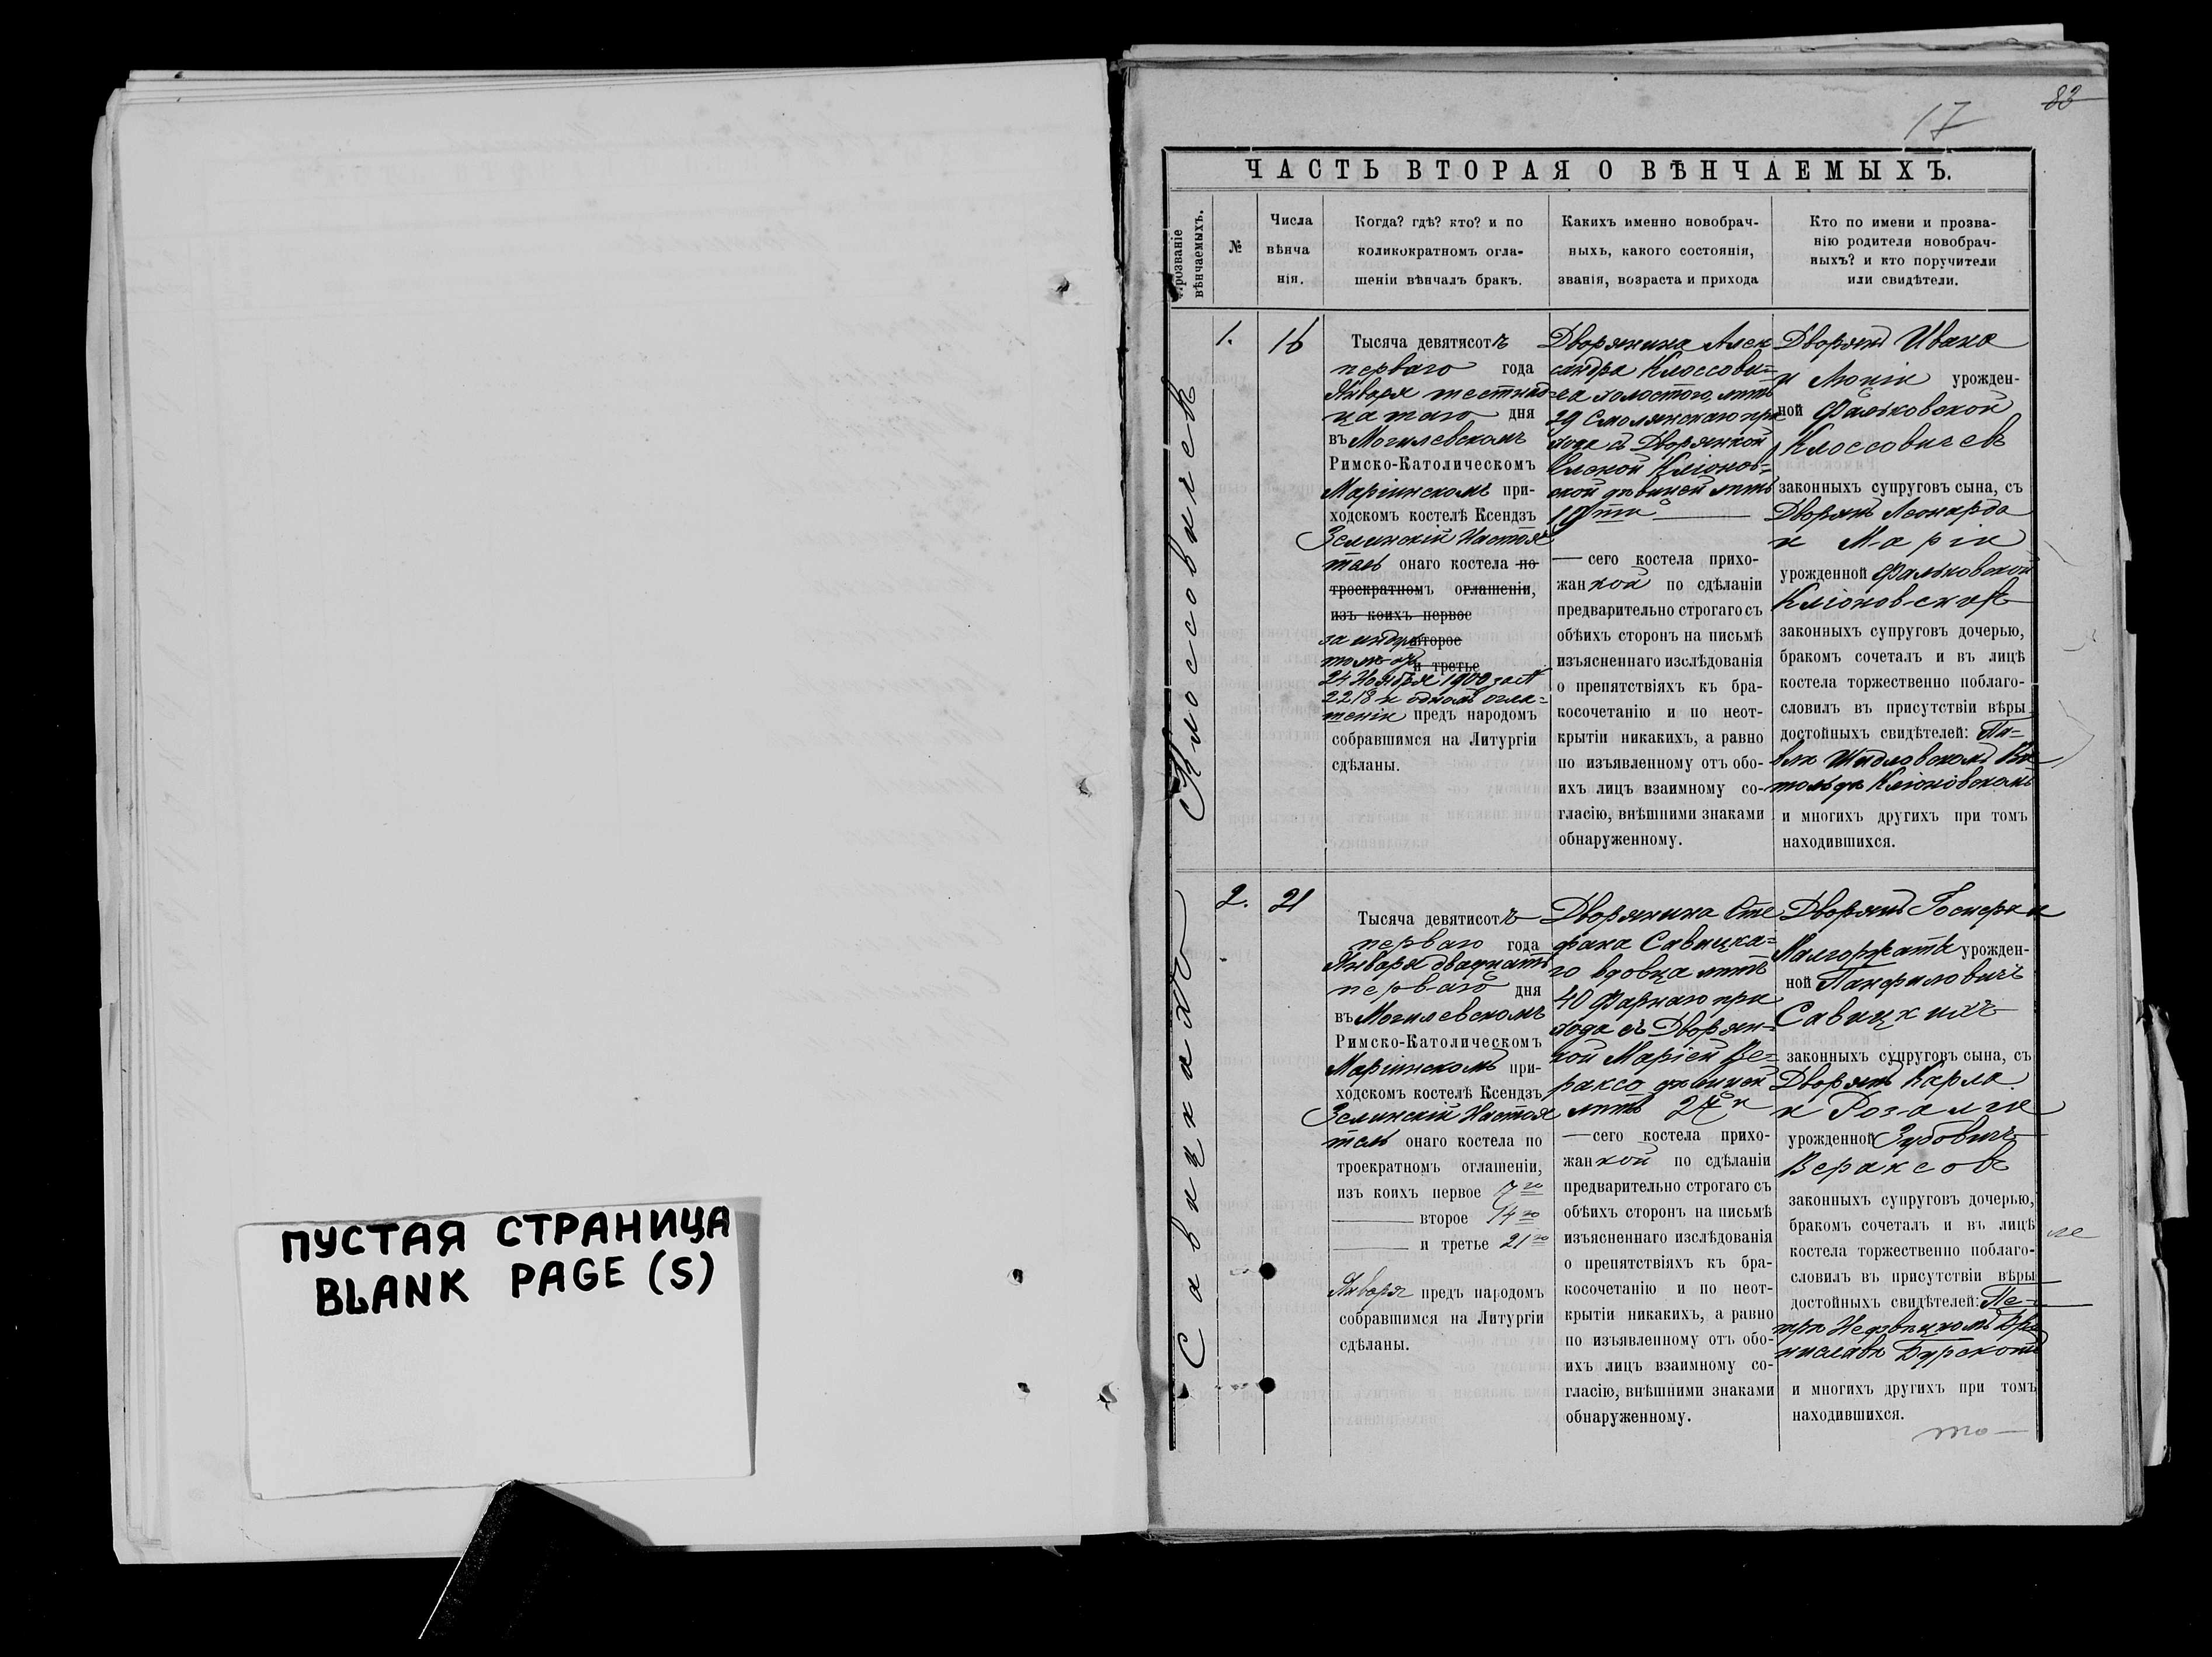 ПУСТАЯ СТРАНИЦА
BLANK PAGE (S)
83
17
ЧАСТЬ ВТОРАЯ О ВѢНЧАЕМЫХЪ.
Прозваніе
вѣнчаемыхъ.
№
Числа
вѣнча
нія.
Когда? гдѣ? кто? и по
коликократномъ огла-
шеніи вѣнчалъ бракъ.
Какихъ именно новобрач-
ныхъ, какого состоянія,
званія, возраста и прихода
Кто по имени и прозва-
нію родители новобрач-
ныхъ? и кто поручители
или свидѣтели.
Клоссовичей
1.
16
Тысяча девятисотъ
перваго года
Января шестнад-
цатаго дня
въ Могилевскомъ
Римско-Католическомъ
Маріинскомъ при-
ходскомъ костелѣ Ксендзъ
Зелинскій Настоя
тель онаго костела по
троекратномъ оглашеніи,
изъ коихъ первое
за индуль второе
томъ отъ и третье
24 Ноября 1900 за №
2218 и одномъ огла-
шеніи предъ народомъ
собравшимся на Литургіи
сдѣланы.
Дворянина Алек
сандра Клоссови-
ча холостого, лѣтъ
29 Смолянскаго при
хода съ Дворянкой
Еленой Кліонов-
ской дѣвицей лѣтъ
19ти
сего костела прихо-
жанкой по сдѣланіи
предварительно строгаго съ
обѣихъ сторонъ на письмѣ
изъясненнаго изслѣдованія
о препятствіяхъ къ бра-
косочетанію и по неот-
крытіи никакихъ, а равно
по изъявленному отъ обо-
ихъ лицъ взаимному со-
гласію, внѣшними знаками
обнаруженному.
Дворянъ Ивана
и Люціи урожден-
ной Фальковской
Клоссовичевъ
законныхъ супруговъ сына, съ
Дворянъ Леонарда
и Маріи
урожденной Фальковской
Кліоновскихъ
законныхъ супруговъ дочерью,
бракомъ сочеталъ и въ лицѣ
костела торжественно поблаго-
словилъ въ присутствіи вѣры
достойныхъ свидѣтелей: Па-
влѣ Шидловскомъ Ви
тольдѣ Кліоновскомъ
и многихъ другихъ при томъ
находившихся.
Савицкаго
2.
21
Тысяча девятисотъ
перваго года
Января двадцать
перваго дня
въ Могилевскомъ
Римско-Католическомъ
Маріинскомъ при-
ходскомъ костелѣ Ксендзъ
Зелинскій Настоя
тель онаго костела по
троекратномъ оглашеніи,
изъ коихъ первое 7го
второе 14го
и третье 21го
Января предъ народомъ
собравшимся на Литургіи
сдѣланы.
Дворянина Сте
фана Савицка-
го вдовца лѣтъ
40 Фарнаго при
хода съ Дворян-
кой Маріей Ве-
раксо дѣвицей
лѣтъ 27и
сего костела прихо-
жанкой по сдѣланіи
предварительно строгаго съ
обѣихъ сторонъ на письмѣ
изъясненнаго изслѣдованія
о препятствіяхъ къ бра-
косочетанію и по неот-
крытіи никакихъ, а равно
по изъявленному отъ обо-
ихъ лицъ взаимному со-
гласію, внѣшними знаками
обнаруженному.
Дворянъ Госпера и
Малгоржаты урожден-
ной Панфиловичъ
Савицкихъ
законныхъ супруговъ сына, съ
Дворянъ Карла
и Розаліи
урожденной Зубовичъ
Вераксовъ
законныхъ супруговъ дочерью,
бракомъ сочеталъ и въ лицѣ
костела торжественно поблаго-
словилъ въ присутствіи вѣры
достойныхъ свидѣтелей: Пе-
трѣ Недзвѣцкомъ Бро
ниславѣ Бурскомъ
и многихъ другихъ при томъ
находившихся.